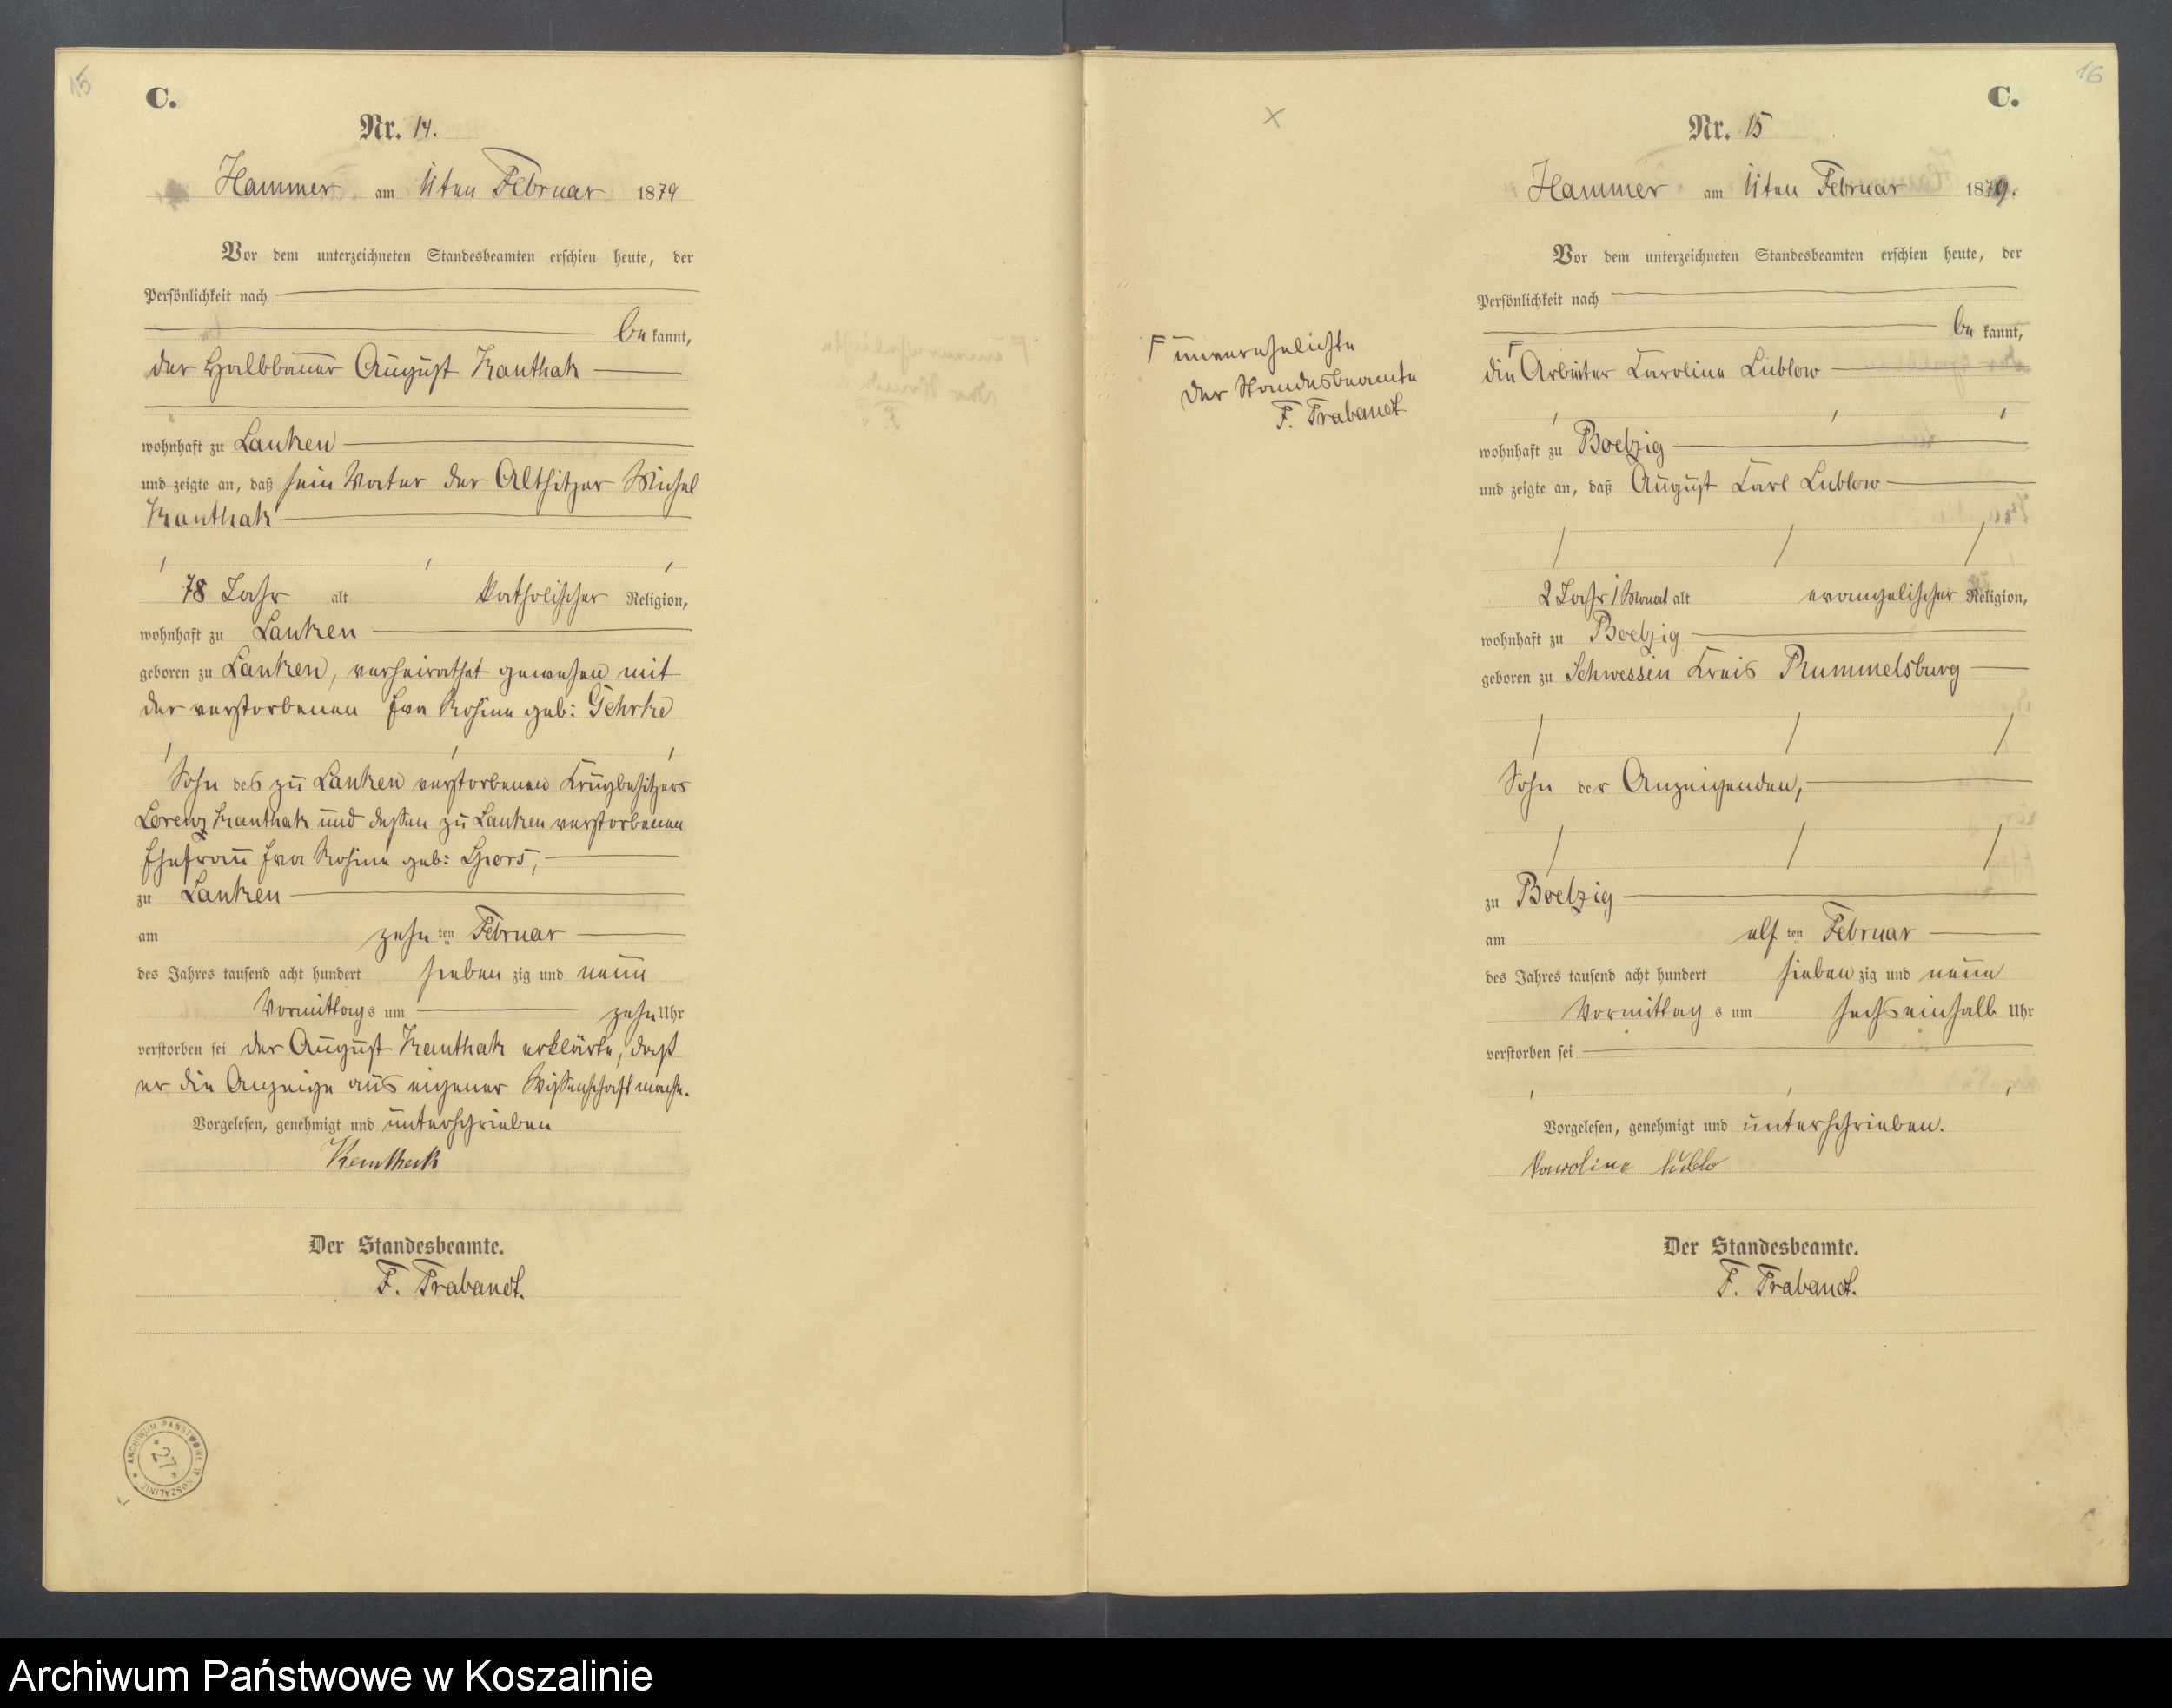 15
C.
Nr. 14.
Hammer am 11ten Februar 1879
Vor dem unterzeichneten Standesbeamten erschien heute, der
Persönlichkeit nach
be kannt,
der Halbbauer August Kanthak
wohnhaft zu Lanken
und zeigte an, daß sein Vater der Altsitzer Michel
Kanthak
78 Jahr alt katholischer Religion,
wohnhaft zu Lanken
geboren zu Lanken, verheirathet gewesen mit
der verstorbenen Eva Rosine geb: Gehrke
Sohn des zu Lanken verstorbenen Krugbesitzers
Lorenz Kanthak und dessen zu Lanken verstorbenen
Ehefrau Eva Rosine geb:
zu Lanken
am zehn ten Februar
des Jahres tausend acht hundert sieben zig und neun
Vormittags um zehn Uhr
verstorben sei der August Kanthak erklärte, daß
er die Anzeige aus eigener Wissenschaft mache.
Vorgelesen, genehmigt und unterschrieben
Kanthak
Der Standesbeamte.
F. Trabandt.
ARCHIWUM PAŃSTWOWE W KOSZALINIE
27
16
C.
Nr. 15
Hammer am 11ten Februar 1879.
Vor dem unterzeichneten Standesbeamten erschien heute, der
Persönlichkeit nach
be kannt,
F unverehelichte
Der Standesbeamte
F. Trabandt
die F Arbeiter Karoline Lüblow
wohnhaft zu Boelzig
und zeigte an, daß August Karl Lüblow
2 Jahr 1 Monat alt evangelischer Religion,
wohnhaft zu Boelzig
geboren zu Schwessin Kreis Rummelsburg
Sohn der Anzeigenden,
zu Boelzig
am elf ten Februar
des Jahres tausend acht hundert sieben zig und neun
Vormittag s um sechseinhalb Uhr
verstorben sei
Vorgelesen, genehmigt und unterschrieben.
Karoline Lüblo
Der Standesbeamte.
F. Trabandt.
Archiwum Państwowe w Koszalinie